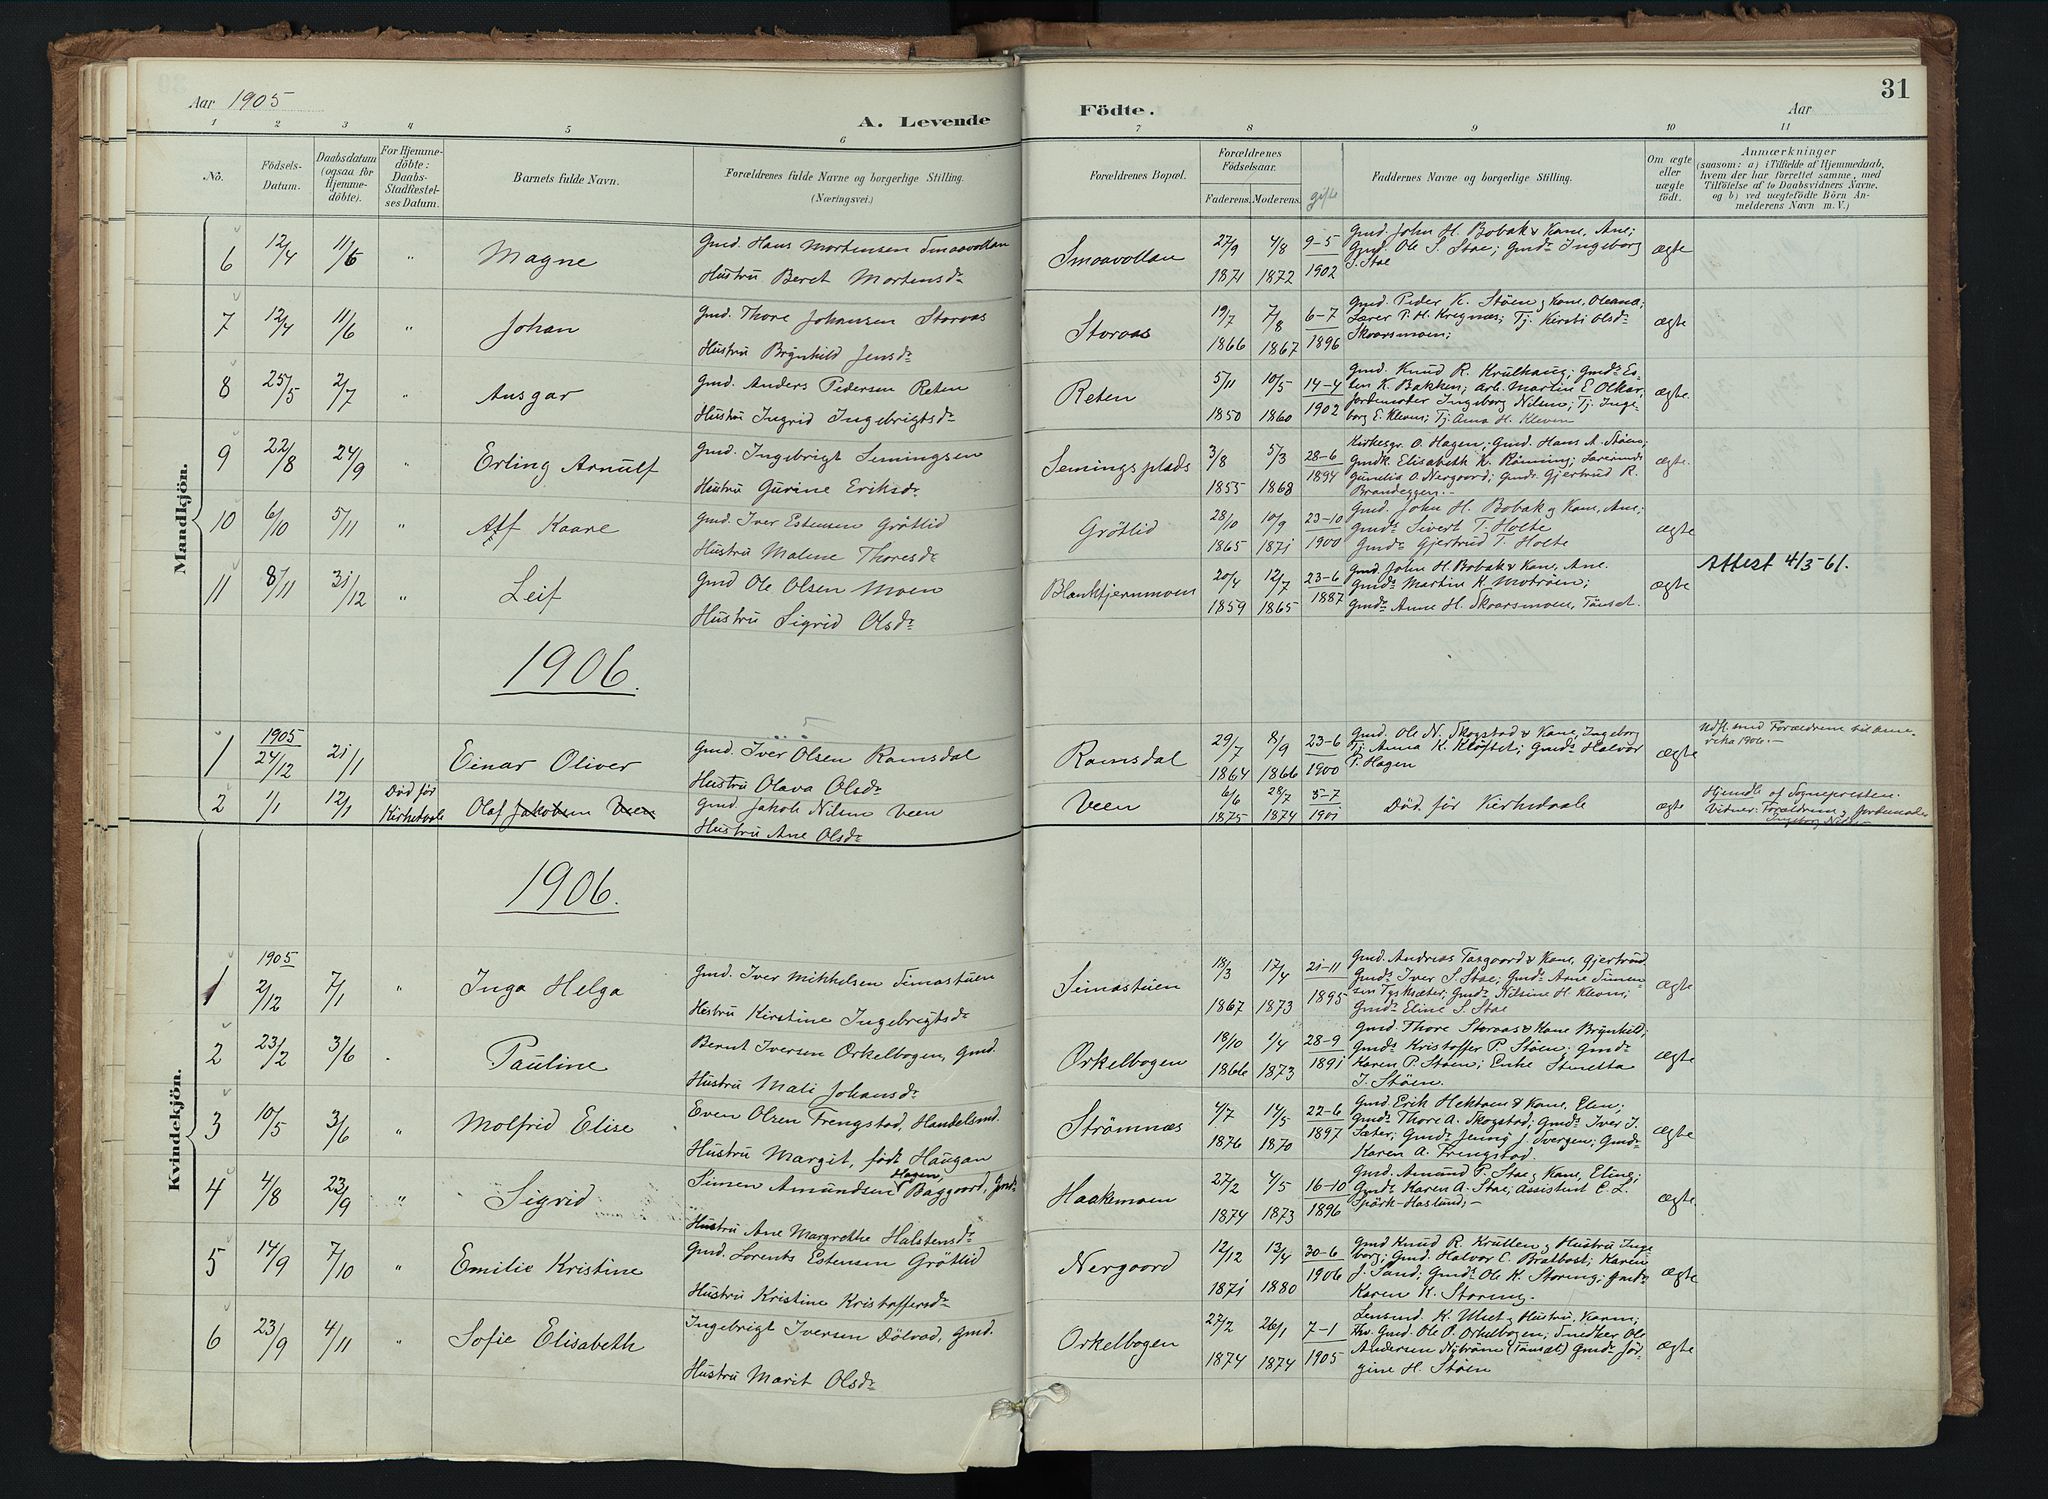 Aar 1905
A. Levende
Födte.
Aar
31
1 2 3 4 5 6 7 8 9 10 11
No.
Födsels-
Datum.
Daabsdatum
(ogsaa for
Hjemme-
döbte).
For Hjemme-
döbte:
Daabs-
Stadfæstel-
ses Datum.
Barnets fulde Navn.
Forældrenes fulde Navne og borgerlige Stilling.
(Næringsvei.)
Forældrenes Bopæl.
Forældrenes
Födselsaar.
Faderens. Moderens.
gifte
Faddernes Navne og borgerlige Stilling.
Om ægte
eller
uægte
födt.
Anmærkninger
(saasom: a) i Tilfælde af Hjemmedaab,
hvem der har forrettet samme, med
Tilföielse af to Daabsvidners Navne,
og b) ved uægtefödte Börn An-
melderens Navn m. V.)
Mandkjön.
6 12/4 11/6 " Magne Gmd. Hans Mortensen Smaavollan
Hustru Beret Mortensdr
Smaavollan 27/9 1871 4/8 1872 9-5 1902
Gmd. John H. Bobak & Kone, Ane;
Gmd. Ole S. Stae; Gmdr Ingeborg
S. Stae
ægte
7 12/4 11/6 " Johan Gmd. Thore Johansen Storaas
Hustru Brynhild Jensdr
Storaas 19/7 1866 7/8 1867 6-7 1896
Gmd. Peder K. Støen & Kone, Oleana;
Lærer P. H. Kregnæs; Tj. Kirsti Olsdr
Skaarsmoen;
ægte
8 25/5 2/7 " Ansgar Gmd. Anders Pedersen Reten
Hustru Ingrid Ingebrigtsdr
Reten 5/11 1850 10/5 1860 14-4 1902
Gmd. Knud R. Krulhaug; Gmds Es-
ten K. Bakken; Arb. Martin E. Olkar,
Jordemoder Ingeborg Nilsen; Tj. Inge-
borg E. Kleven; Tj. Anna H. Kleven
ægte.
9 22/8 24/9 " Erling Arnulf Gmd. Ingebrigt Semingsen
Hustru Gurine Eriksdr
Semingsplads 3/8 1855 5/3 1868 28-6 1894
Kirkesgr. O. Hagen; Gmd. Hans A. Støen;
Gmdk. Elisabeth K. Rønning; Lærerinde
Gunelia O. Nergaard; Gmdr. Gjertrud R.
Brandeggen.-
ægte.
10 6/10 5/11 " Alf Kaare Gmd. Iver Estensen Grøtlid
Hustru Malene Thoresdr
Grøtlid 28/10 1865 10/9 1871 23-10 1900
Gmd. John H. Bobak & Kone, Ane;
Gmds Sivert T. Holte
Gmdr Gjertrud T. Holte
ægte
11 8/11 31/12 " Leif Gmd Ole Olsen Moen
Hustru Sigrid Olsdr
Blanktjernmoen 20/4 1859 12/7 1865 23-6 1887
Gmd. John H. Bobak & Kone, Ane.
Gmds Martin K. Motrøen;
Gmdr Anne H. Skaarsmoen, Tønset.
ægte Attest 4/3-61.
1906.
1 1905 24/12 21/1 Einar Oliver Gmd. Iver Olsen Ramsdal
Hustru Olava Olsdr
Ramsdal 29/7 1864 8/9 1866 23-6 1900
Gmd. Ole N. Skogstad & Kone, Ingeborg
Tj. Anna K. Kløftet; Gmds Halvor
P. Hagen
ægte
Udfl. med Forældrene til Ame-
rika 1906.-
2 1/1 12/1 Død før
Kirkedaab Olaf Jakobsen Veen Gmd. Jakob Nilsen Veen
Hustru Ane Olsdr
Veen 6/6 1875 28/7 1874 5-7 1901
Død før Kirkedaab ægte
Hjemdb. af Sognepresten.
Vidner: Forældrene & Jordemoder
Ingeborg Nilsen
Kvindekjön.
1906.
1 1905 2/12 7/1 " Inga Helga Gmd. Iver Mikkelsen Simastuen
Hustru Kirstine Ingebrigtsdr
Simastuen 18/3 1867 17/4 1873 21-11 1895
Gmd. Andreas Tangaard & Kone, Gjertrud
Gmds Iver S. Stae; Gmds Arne Simen-
sen Tysksæter; Gmdr Nilsine H. Kleven;
Gmdr Eline S. Stae
ægte
2 23/2 3/6 Pauline Bernt Iversen Orkelbogen, Gmd.
Hustru Mali Johansdr
Orkelbogen 18/10 1866 1/4 1873 28-9 1891
Gmd. Thore Storaas & Kone Brynhild;
Gmds Kristoffer P. Støen. Gmdr
Karen P. Støen; Enke Sinetta
J. Støen.
ægte
3 10/5 3/6 " Molfrid Elise Even Olsen Frengstad, Handelsmd.
Hustru Margit, født Haugan
Strømnæs 4/7 1876 14/5 1870 22-6 1897
Gmd. Erik Hektoen & Kone, Elen;
Gmds Thore A. Skogstad; Gmds Iver J.
Sæter; Gmdr Jenny J. Svergen; Gmdr
Karen A. Frengstad.
ægte
4 4/8 23/9 " Sigrid Simen Amundsen Hagen, Baggaard, Gmds
Hustru Ane Margrethe Halstensdr
Haakmoen 27/2 1874 4/5 1873 16-10 1896
Gmd. Amund P. Stae & Kone, Eline;
Gmdr Karen A. Stae; Assistent C. L.
Spärk-Haslund;-
ægte
5 14/9 7/10 " Emilie Kristine Gmd. Lorents Estensen Grøtlid
Hustru Kristine Kristoffersdr
Nergaard 12/12 1871 13/4 1880 30-6 1906
Gmd Knud R. Krullen & Hustru Inge-
borg; Gmd. Halvor E. Bratbost; Karen
J. Sand; Gmds Ole K. Storing; Gmdr
Karen K. Storing.
ægte
6 23/9 4/11 " Sofie Elisabeth Ingebrigt Iversen Dølvad, Gmd.
Hustru Marit Olsdr
Orkelbogen 27/2 1874 26/1 1874 7-1 1905
Lensmd. K. Uset & Hustru, Karen;
Fhv. Gmd. Ole O. Orkelbogen; Snedker Ole
Andersen Nytrøen (Tønset) Gmdr Jør-
gine H. Støen
ægte